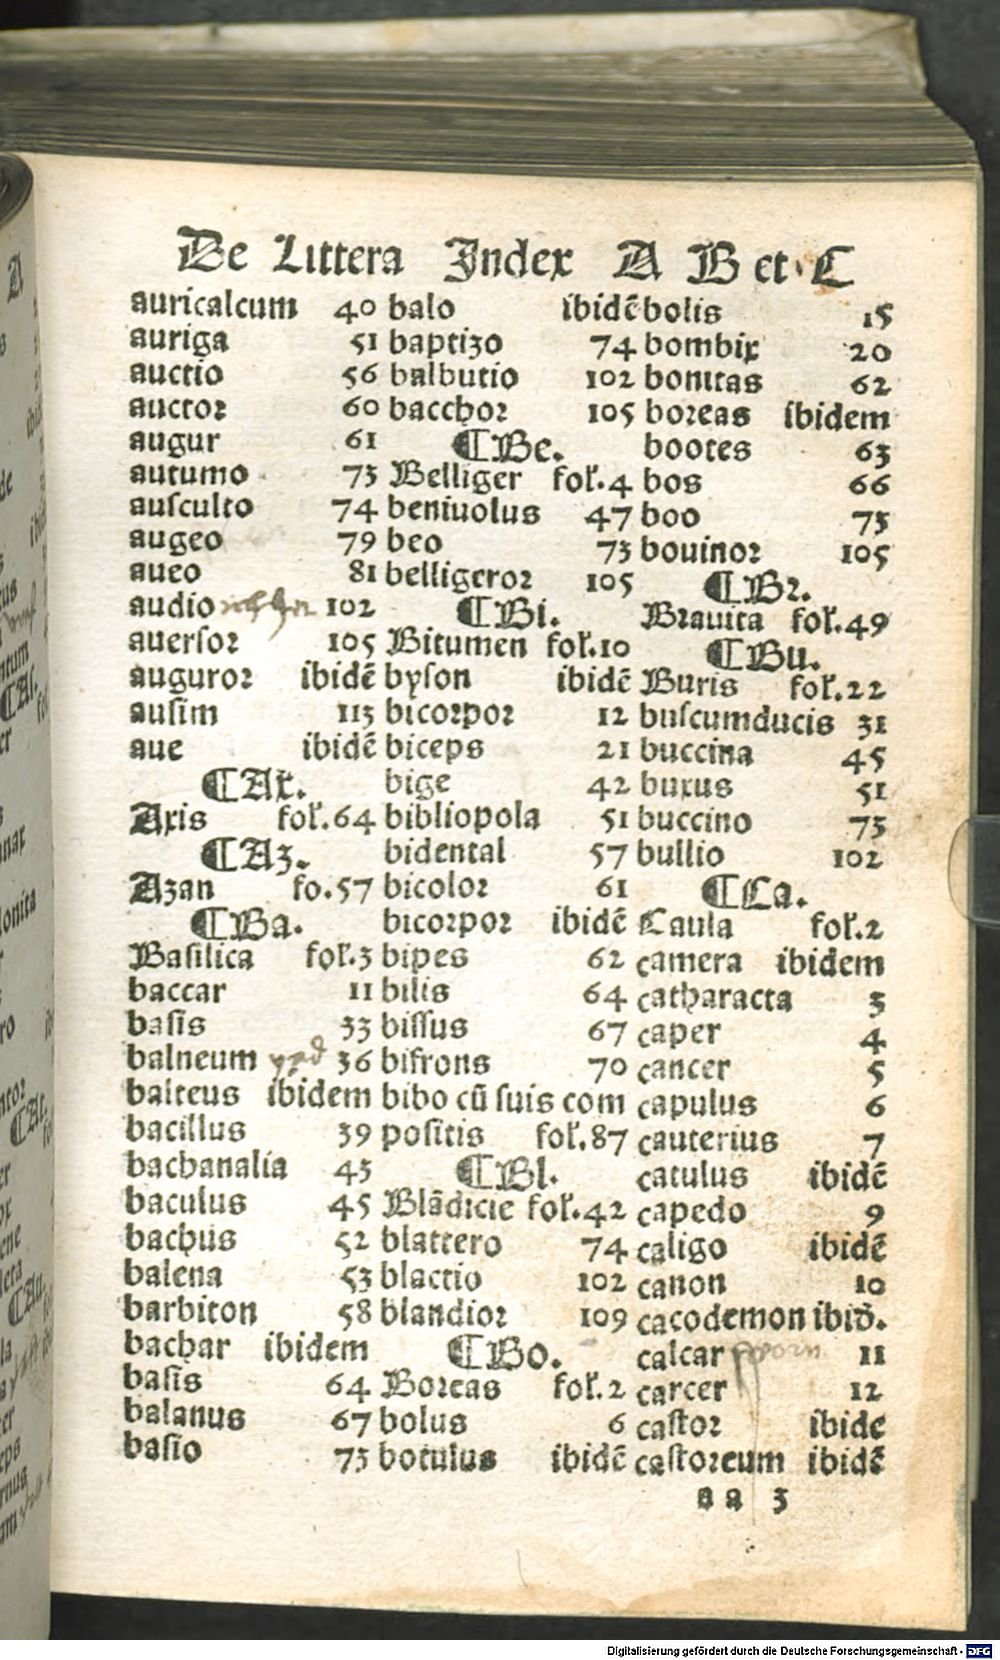 De Littera Index A B et C
auricalcum 40
auriga 51
auctio 56
auctor 60
augur 61
autumo 73
ausculto 74
augeo 79
aueo 81
audio 102
auersor 105
auguror ibidē
ausim 113
aue ibidē
¶Ax.
Axis fol.64
¶Az.
Azan fo.57
¶Ba.
Basilica fol.3
baccar 11
basis 33
balneum 36
balteus ibidem
bacillus 39
bachanalia 43
baculus 45
bachus 52
balena 53
barbiton 58
bachar ibidem
basis 64
balanus 67
basio 73
balo ibidē
baptizo 74
balbutio 102
bacchor 105
¶Be.
Belliger fol.4
beniuolus 47
beo 73
belligeror 105
¶Bi.
Bitumen fol.10
byson ibidē
bicorpor 12
biceps 21
bige 42
bibliopola 51
bidental 57
bicolor 61
bicorpor ibidē
bipes 62
bilis 64
bissus 67
bifrons 70
bibo cū suis com
positis fol.87
¶Bl.
Blādicie fol.42
blattero 74
blactio 102
blandior 109
¶Bo.
Boreas fol.2
bolus 6
botulus ibidē
bolis 15
bombix 20
bonitas 62
boreas ibidem
bootes 63
bos 66
boo 73
bouinor 105
¶Br.
Brauita fol.49
¶Bu.
Buris fol.22
buscumducis 31
buccina 45
buxus 51
buccino 73
bullio 102
¶Ca.
Caula fol.2
camera ibidem
catharacta 3
caper 4
cancer 5
capulus 6
cauterius 7
catulus ibidē
capedo 9
caligo ibidē
canon 10
cacodemon ibid.
calcar 11
carcer 12
castor ibide
castoreum ibidē
aa 3
Digitalisierung gefördert durch die Deutsche Forschungsgemeinschaft - DFG